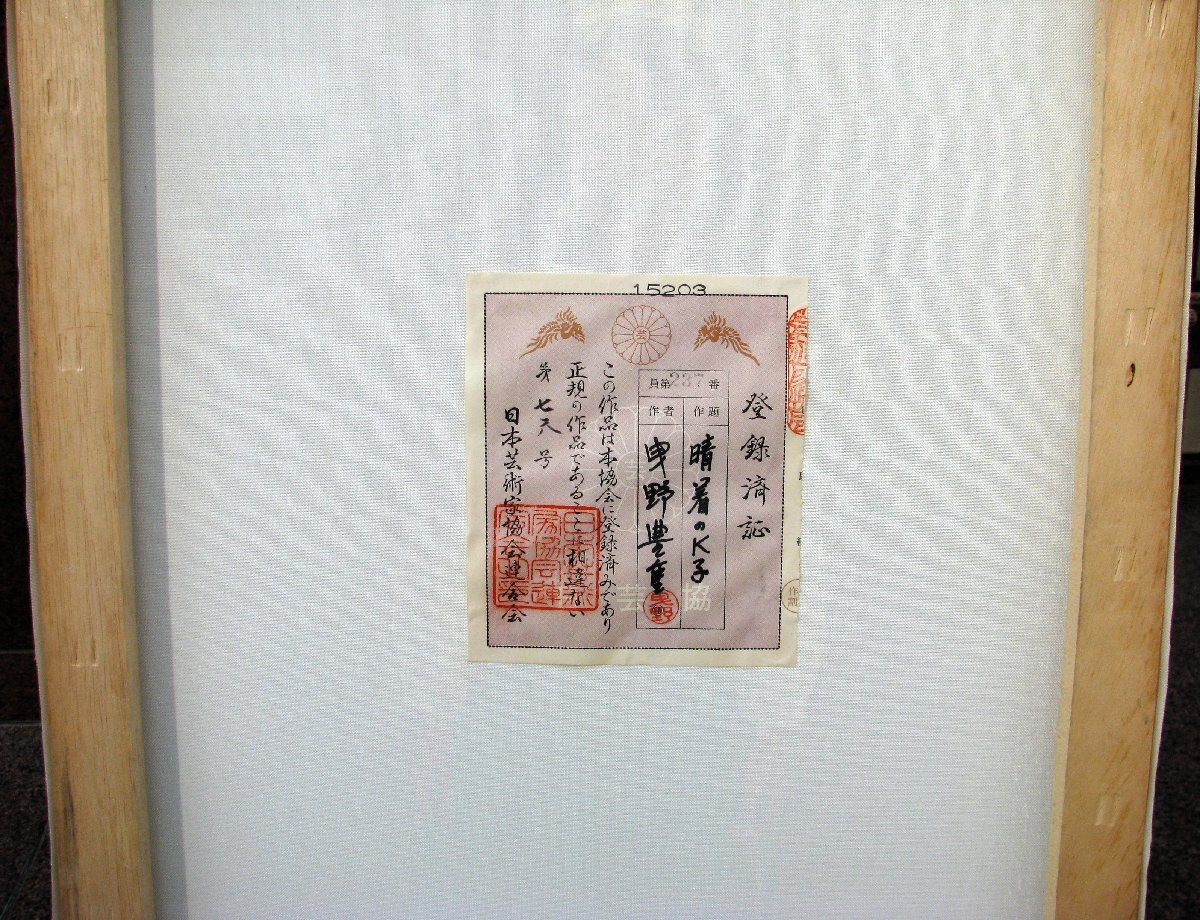 15203
登録済証
員第237番
作題
晴着のK子
作者
曳野豊重
この作品は本協会に登録済みであり
正規の作品であることに相違ない
第七八号
日本芸術家協会連合会
芸協